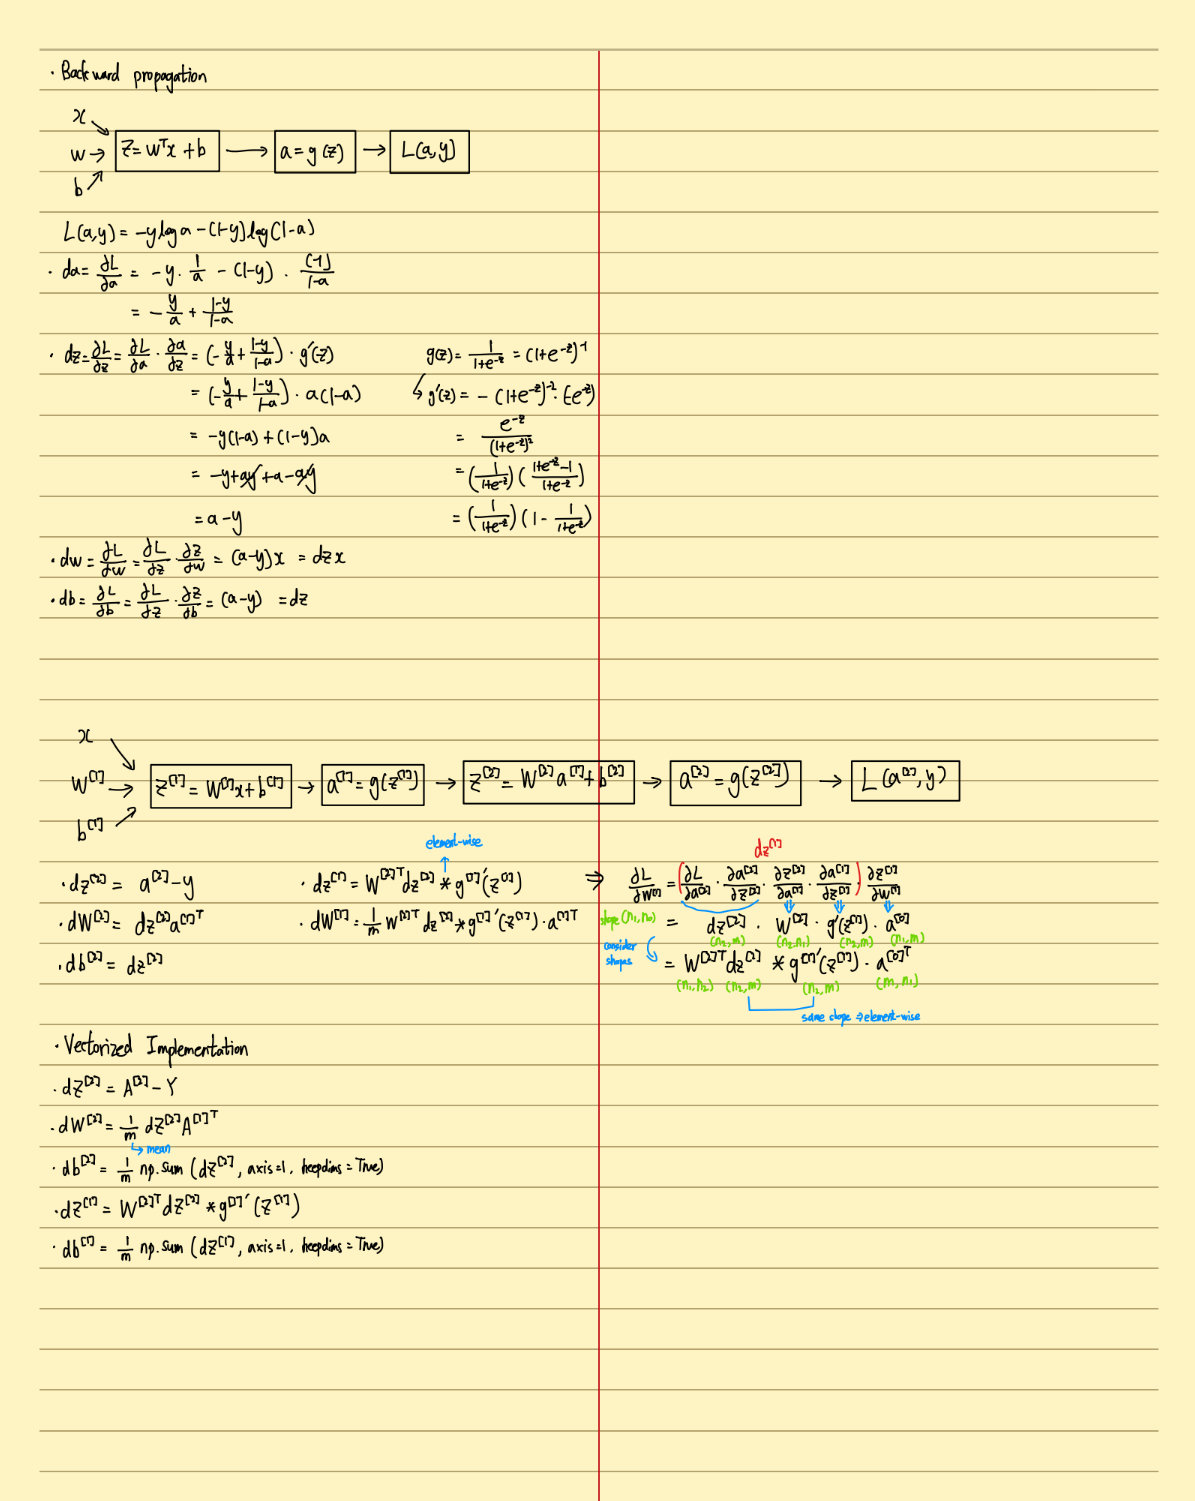 · Backward propagation
x
w → z = wᵀx + b → a = g(z) → L(a,y)
b
L(a,y) = -y log a - (1-y) log(1-a)
· da = ∂L/∂a = -y · 1/a - (1-y) · (-1)/(1-a)
= -y/a + (1-y)/(1-a)
· dz = ∂L/∂z = ∂L/∂a · ∂a/∂z = (-y/a + (1-y)/(1-a)) · g'(z)
= (-y/a + (1-y)/(1-a)) · a(1-a)
= -y(1-a) + (1-y)a
= -y + ay + a - ay
= a - y
g(z) = 1/(1+e^-z) = (1+e^-z)^-1
↳ g'(z) = -(1+e^-z)^-2 · (-e^-z)
= e^-z/(1+e^-z)^2
= (1/(1+e^-z)) ((1+e^-z-1)/(1+e^-z))
= (1/(1+e^-z)) (1 - 1/(1+e^-z))
· dw = ∂L/∂w = ∂L/∂z · ∂z/∂w = (a-y)x = dz x
· db = ∂L/∂b = ∂L/∂z · ∂z/∂b = (a-y) = dz
x
W[1] → z[1] = W[1]x + b[1] → a[1] = g(z[1]) → z[2] = W[2]a[1] + b[2] → a[2] = g(z[2]) → L(a[2], y)
b[1]
· dz[2] = a[2] - y
· dW[2] = dz[2]a[1]ᵀ
· db[2] = dz[2]
element-wise
· dz[1] = W[2]ᵀdz[2] * g[1]'(z[1])
· dW[1] = 1/m W[2]ᵀ dz[2] * g[1]'(z[1]) · a[0]ᵀ
dz[1]
⇒ ∂L/∂W[1] = (∂L/∂a[2] · ∂a[2]/∂z[2] · ∂z[2]/∂a[1] · ∂a[1]/∂z[1]) · ∂z[1]/∂w[1]
shape (n₁, n₀) = dz[2] · W[2] · g'(z[1]) · a[0]
(n₂,m) (n₂,n₁) (n₂,m) (n₁,m)
consider shapes
= W[2]ᵀdz[2] * g[1]'(z[1]) · a[0]ᵀ
(n₁, n₂) (n₂,m) (n₂,m) (m, n₁)
same shape ⇒ element-wise
· Vectorized Implementation
· dZ[2] = A[2] - Y
· dW[2] = 1/m dZ[2]A[1]ᵀ
↳ mean
· db[2] = 1/m np.sum (dZ[2], axis=1, keepdims=True)
· dZ[1] = W[2]ᵀdZ[2] * g[1]'(Z[1])
· db[1] = 1/m np.sum (dZ[1], axis=1, keepdims=True)